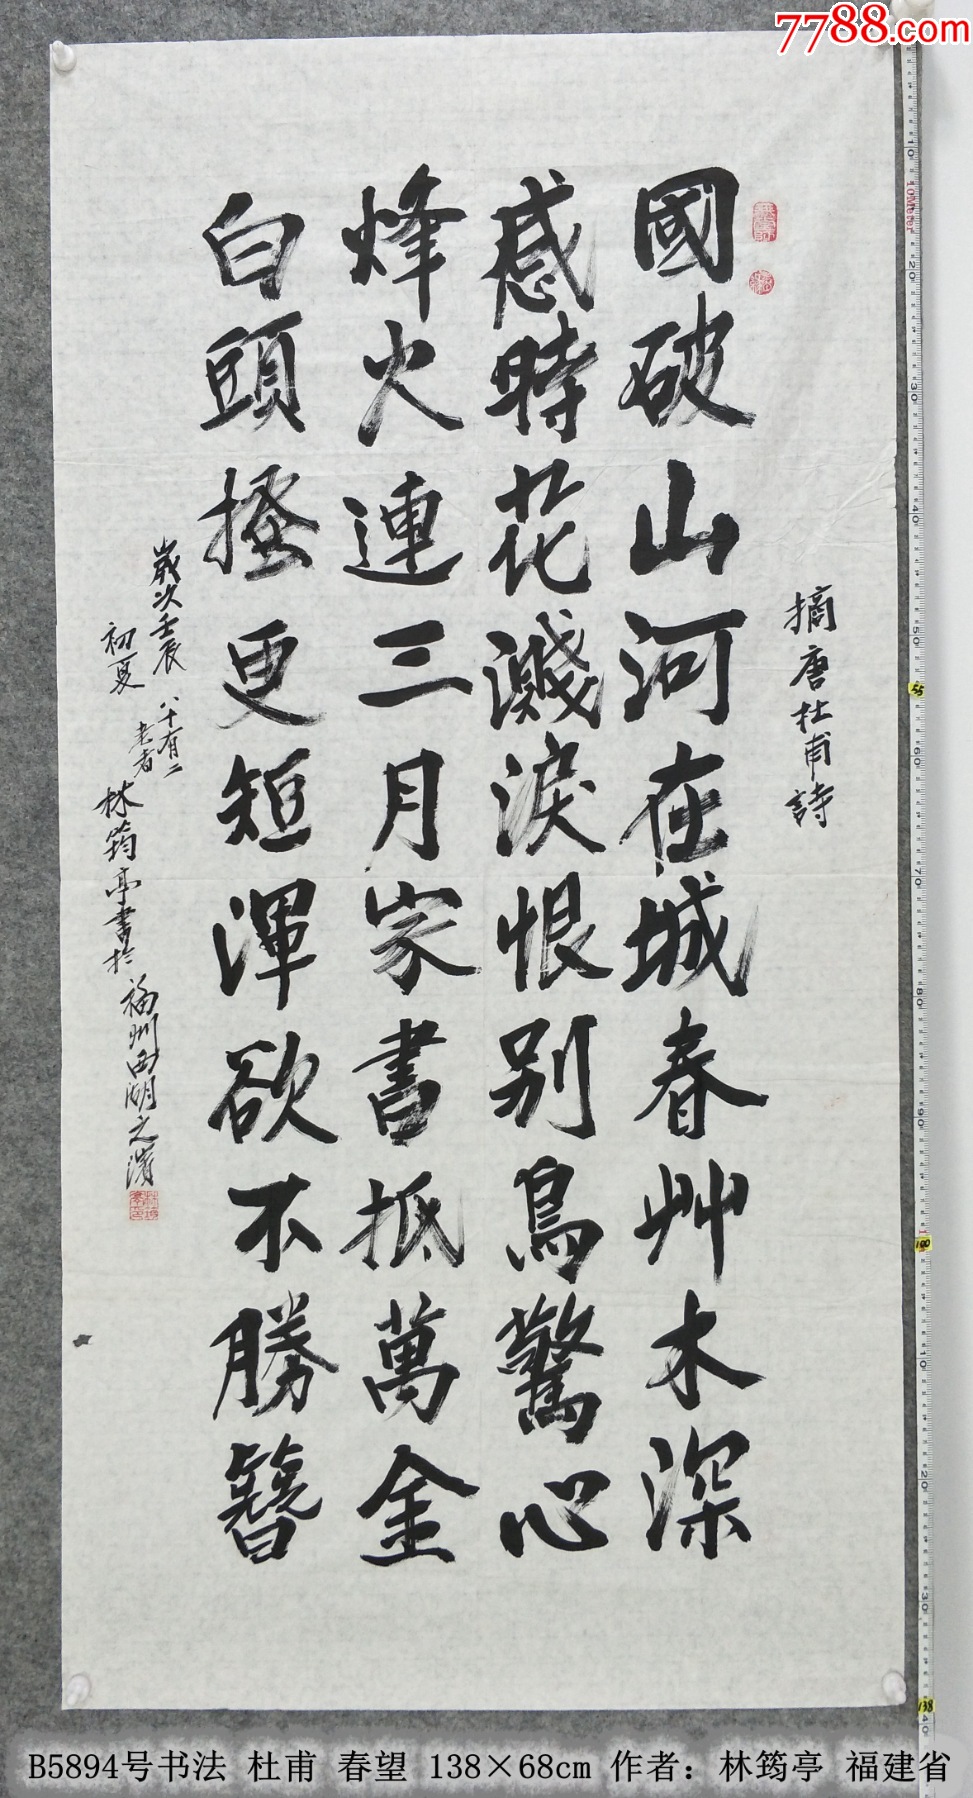 7788.com
摘唐杜甫詩
國破山河在城春艸木深
感時花濺淚恨别鳥驚心
烽火連三月家書抵萬金
白頭搔更短渾欲不勝簪
歲次壬辰
初夏
八十有二
老者
林筠亭書於
福州西湖之濱
10Meter
55
100
138
B5894号书法 杜甫 春望 138×68cm 作者：林筠亭 福建省